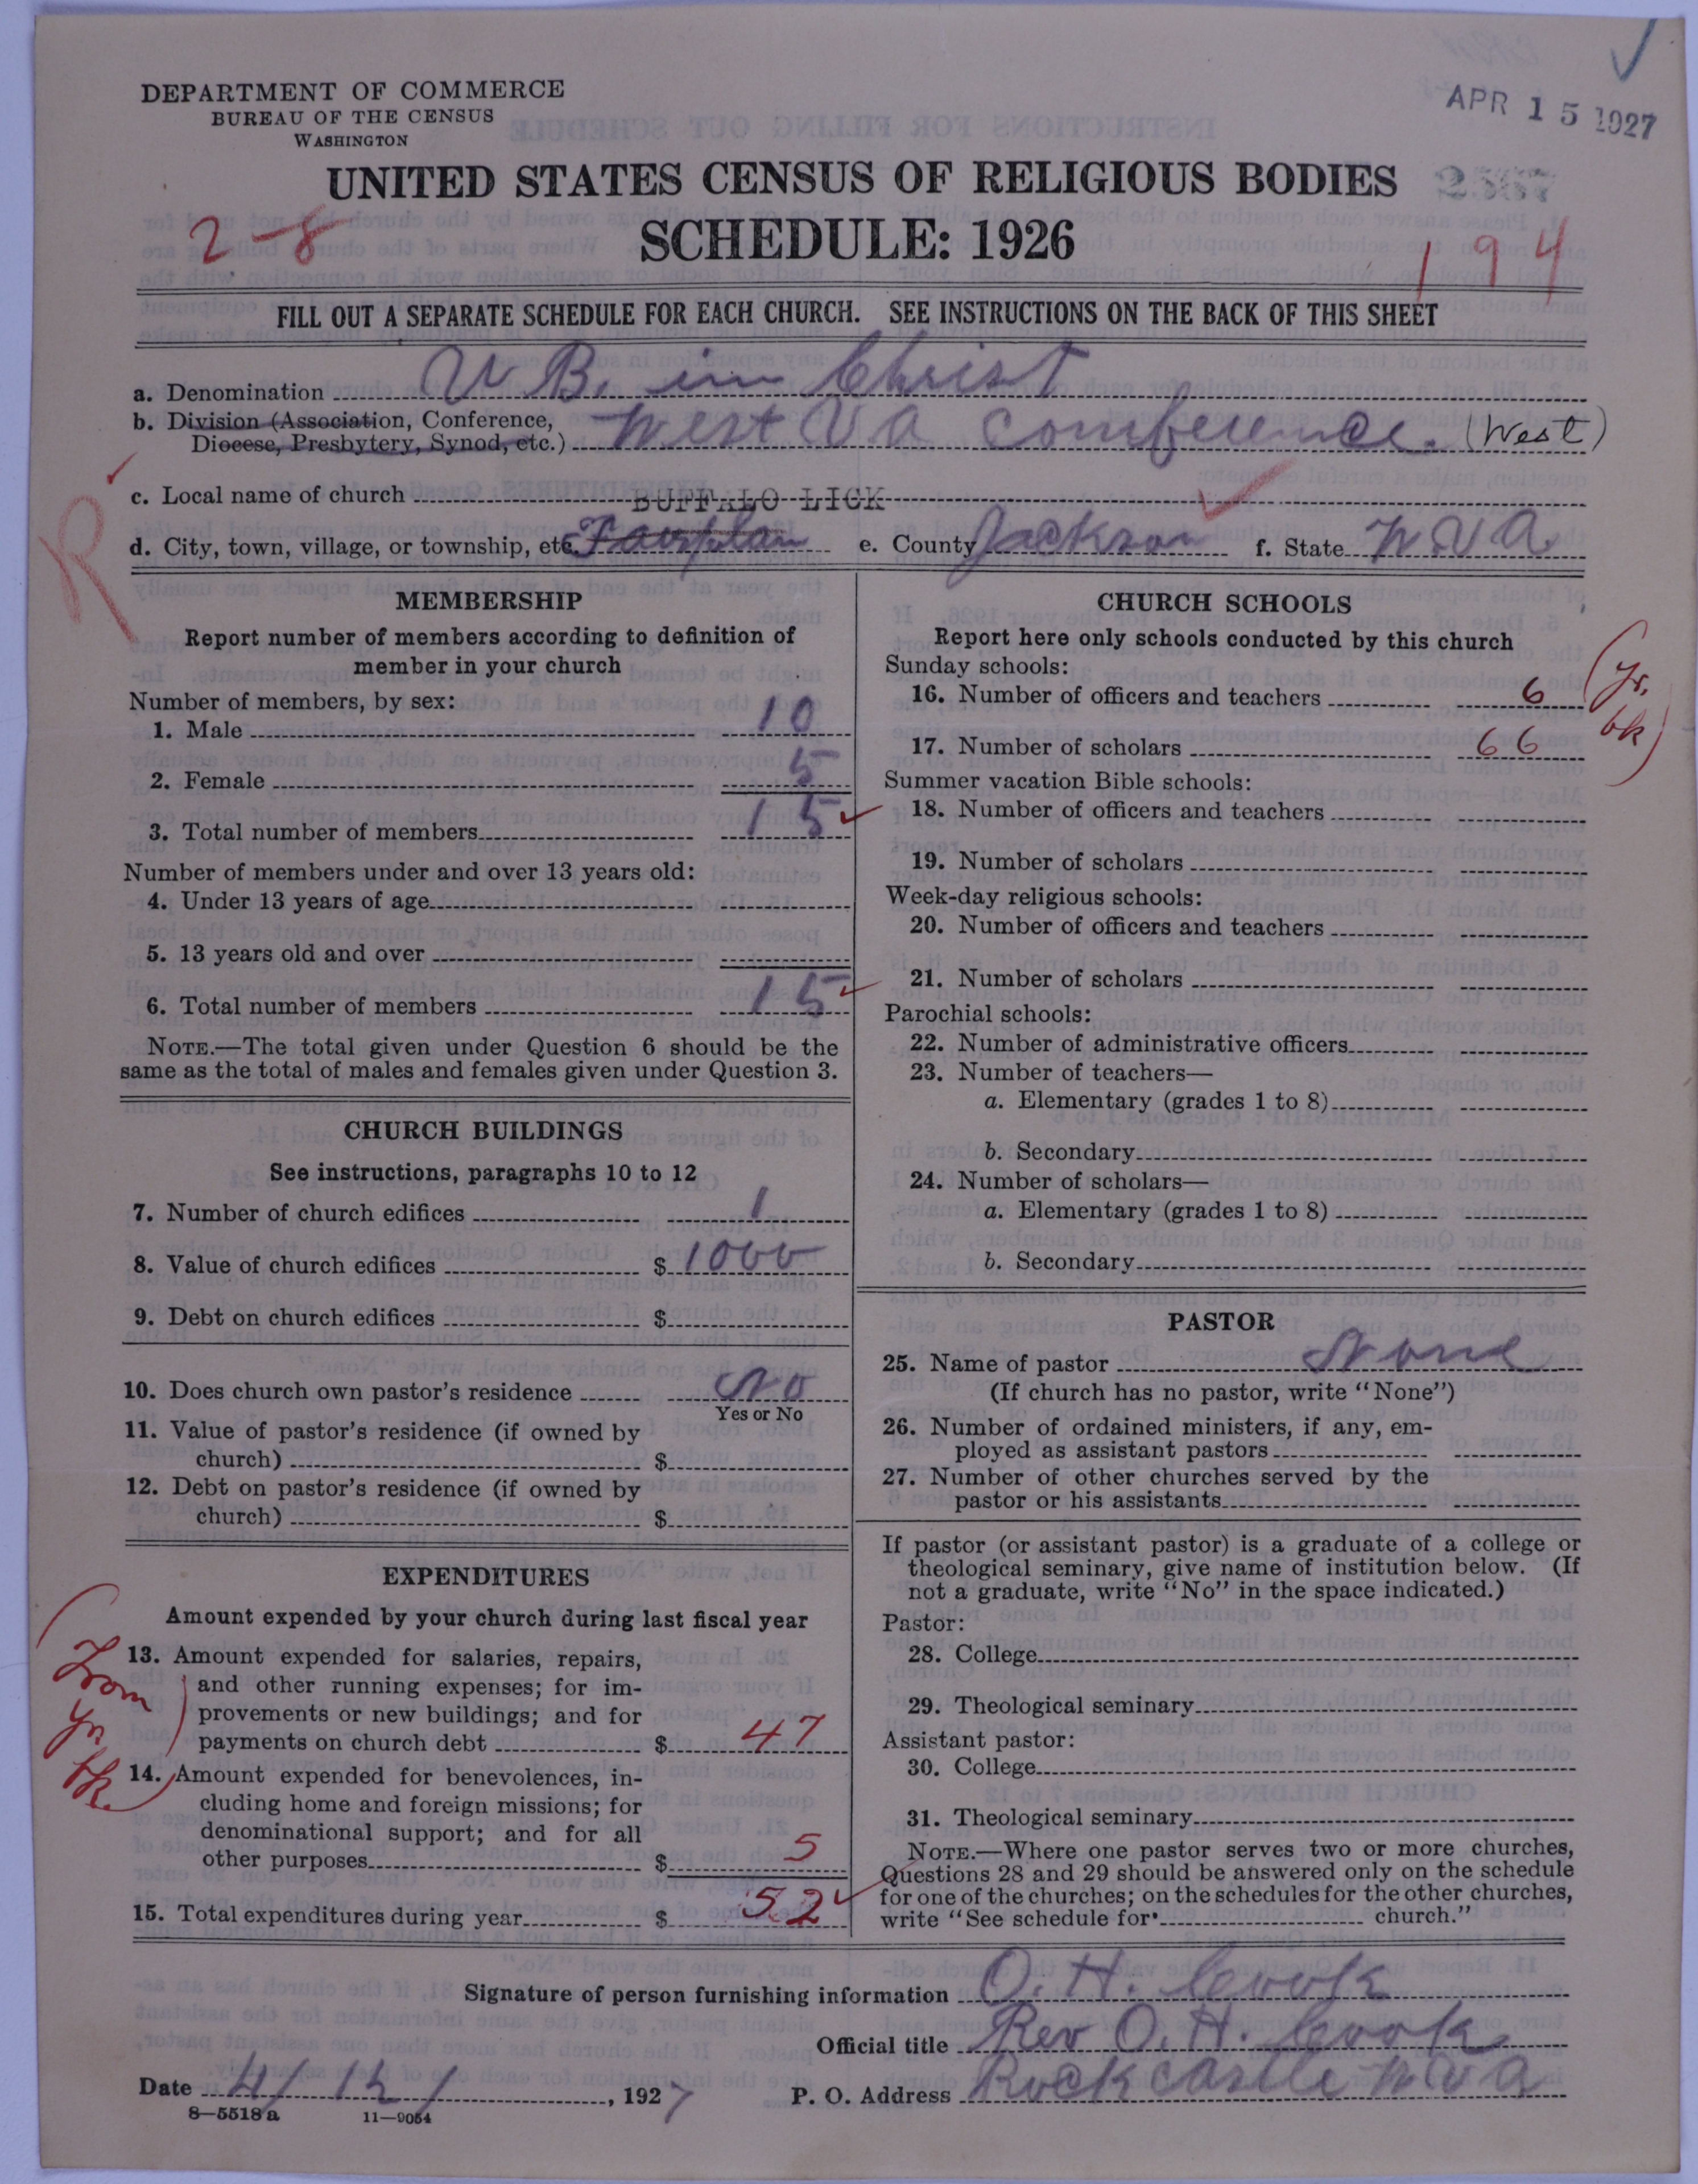 DEPARTMENT OF COMMERCE
BUREAU OF THE CENSUS
WASHINGTON
APR 15 1927
UNITED STATES CENSUS OF RELIGIOUS BODIES
2567
SCHEDULE: 1926
2-8
194
FILL OUT A SEPARATE SCHEDULE FOR EACH CHURCH. SEE INSTRUCTIONS ON THE BACK OF THIS SHEET
a. Denomination U B. in Christ
b. Division (Association, Conference,
Diocese, Presbytery, Synod, etc.) West Va Conference. (West)
R
c. Local name of church BUFFALO LICK
d. City, town, village, or township, etc. e. County Jackson f. State W.VA.
MEMBERSHIP
Report number of members according to definition of
member in your church
Number of members, by sex:
1. Male 10
2. Female 5
3. Total number of members 15
Number of members under and over 13 years old:
4. Under 13 years of age
5. 13 years old and over
6. Total number of members 15
NOTE.—The total given under Question 6 should be the
same as the total of males and females given under Question 3.
CHURCH BUILDINGS
See instructions, paragraphs 10 to 12
7. Number of church edifices 1
8. Value of church edifices $ 1000
9. Debt on church edifices $
10. Does church own pastor's residence No
Yes or No
11. Value of pastor's residence (if owned by
church) $
12. Debt on pastor's residence (if owned by
church) $
EXPENDITURES
Amount expended by your church during last fiscal year
(From yr. bk.)
13. Amount expended for salaries, repairs,
and other running expenses; for im-
provements or new buildings; and for
payments on church debt $ 47
14. Amount expended for benevolences, in-
cluding home and foreign missions; for
denominational support; and for all
other purposes $ 5
15. Total expenditures during year $ 52
CHURCH SCHOOLS
Report here only schools conducted by this church
Sunday schools:
16. Number of officers and teachers 6
(yr. bk)
17. Number of scholars 66
Summer vacation Bible schools:
18. Number of officers and teachers
19. Number of scholars
Week-day religious schools:
20. Number of officers and teachers
21. Number of scholars
Parochial schools:
22. Number of administrative officers
23. Number of teachers—
a. Elementary (grades 1 to 8)
b. Secondary
24. Number of scholars—
a. Elementary (grades 1 to 8)
b. Secondary
PASTOR
25. Name of pastor None
(If church has no pastor, write "None")
26. Number of ordained ministers, if any, em-
ployed as assistant pastors
27. Number of other churches served by the
pastor or his assistants
If pastor (or assistant pastor) is a graduate of a college or
theological seminary, give name of institution below. (If
not a graduate, write "No" in the space indicated.)
Pastor:
28. College
29. Theological seminary
Assistant pastor:
30. College
31. Theological seminary
NOTE.—Where one pastor serves two or more churches,
Questions 28 and 29 should be answered only on the schedule
for one of the churches; on the schedules for the other churches,
write "See schedule for church."
Signature of person furnishing information O. H. Cook
Official title Rev O. H. Cook
Date 4/12/, 1927 P. O. Address Rock Castle W Va
8-5518 a 11-9054